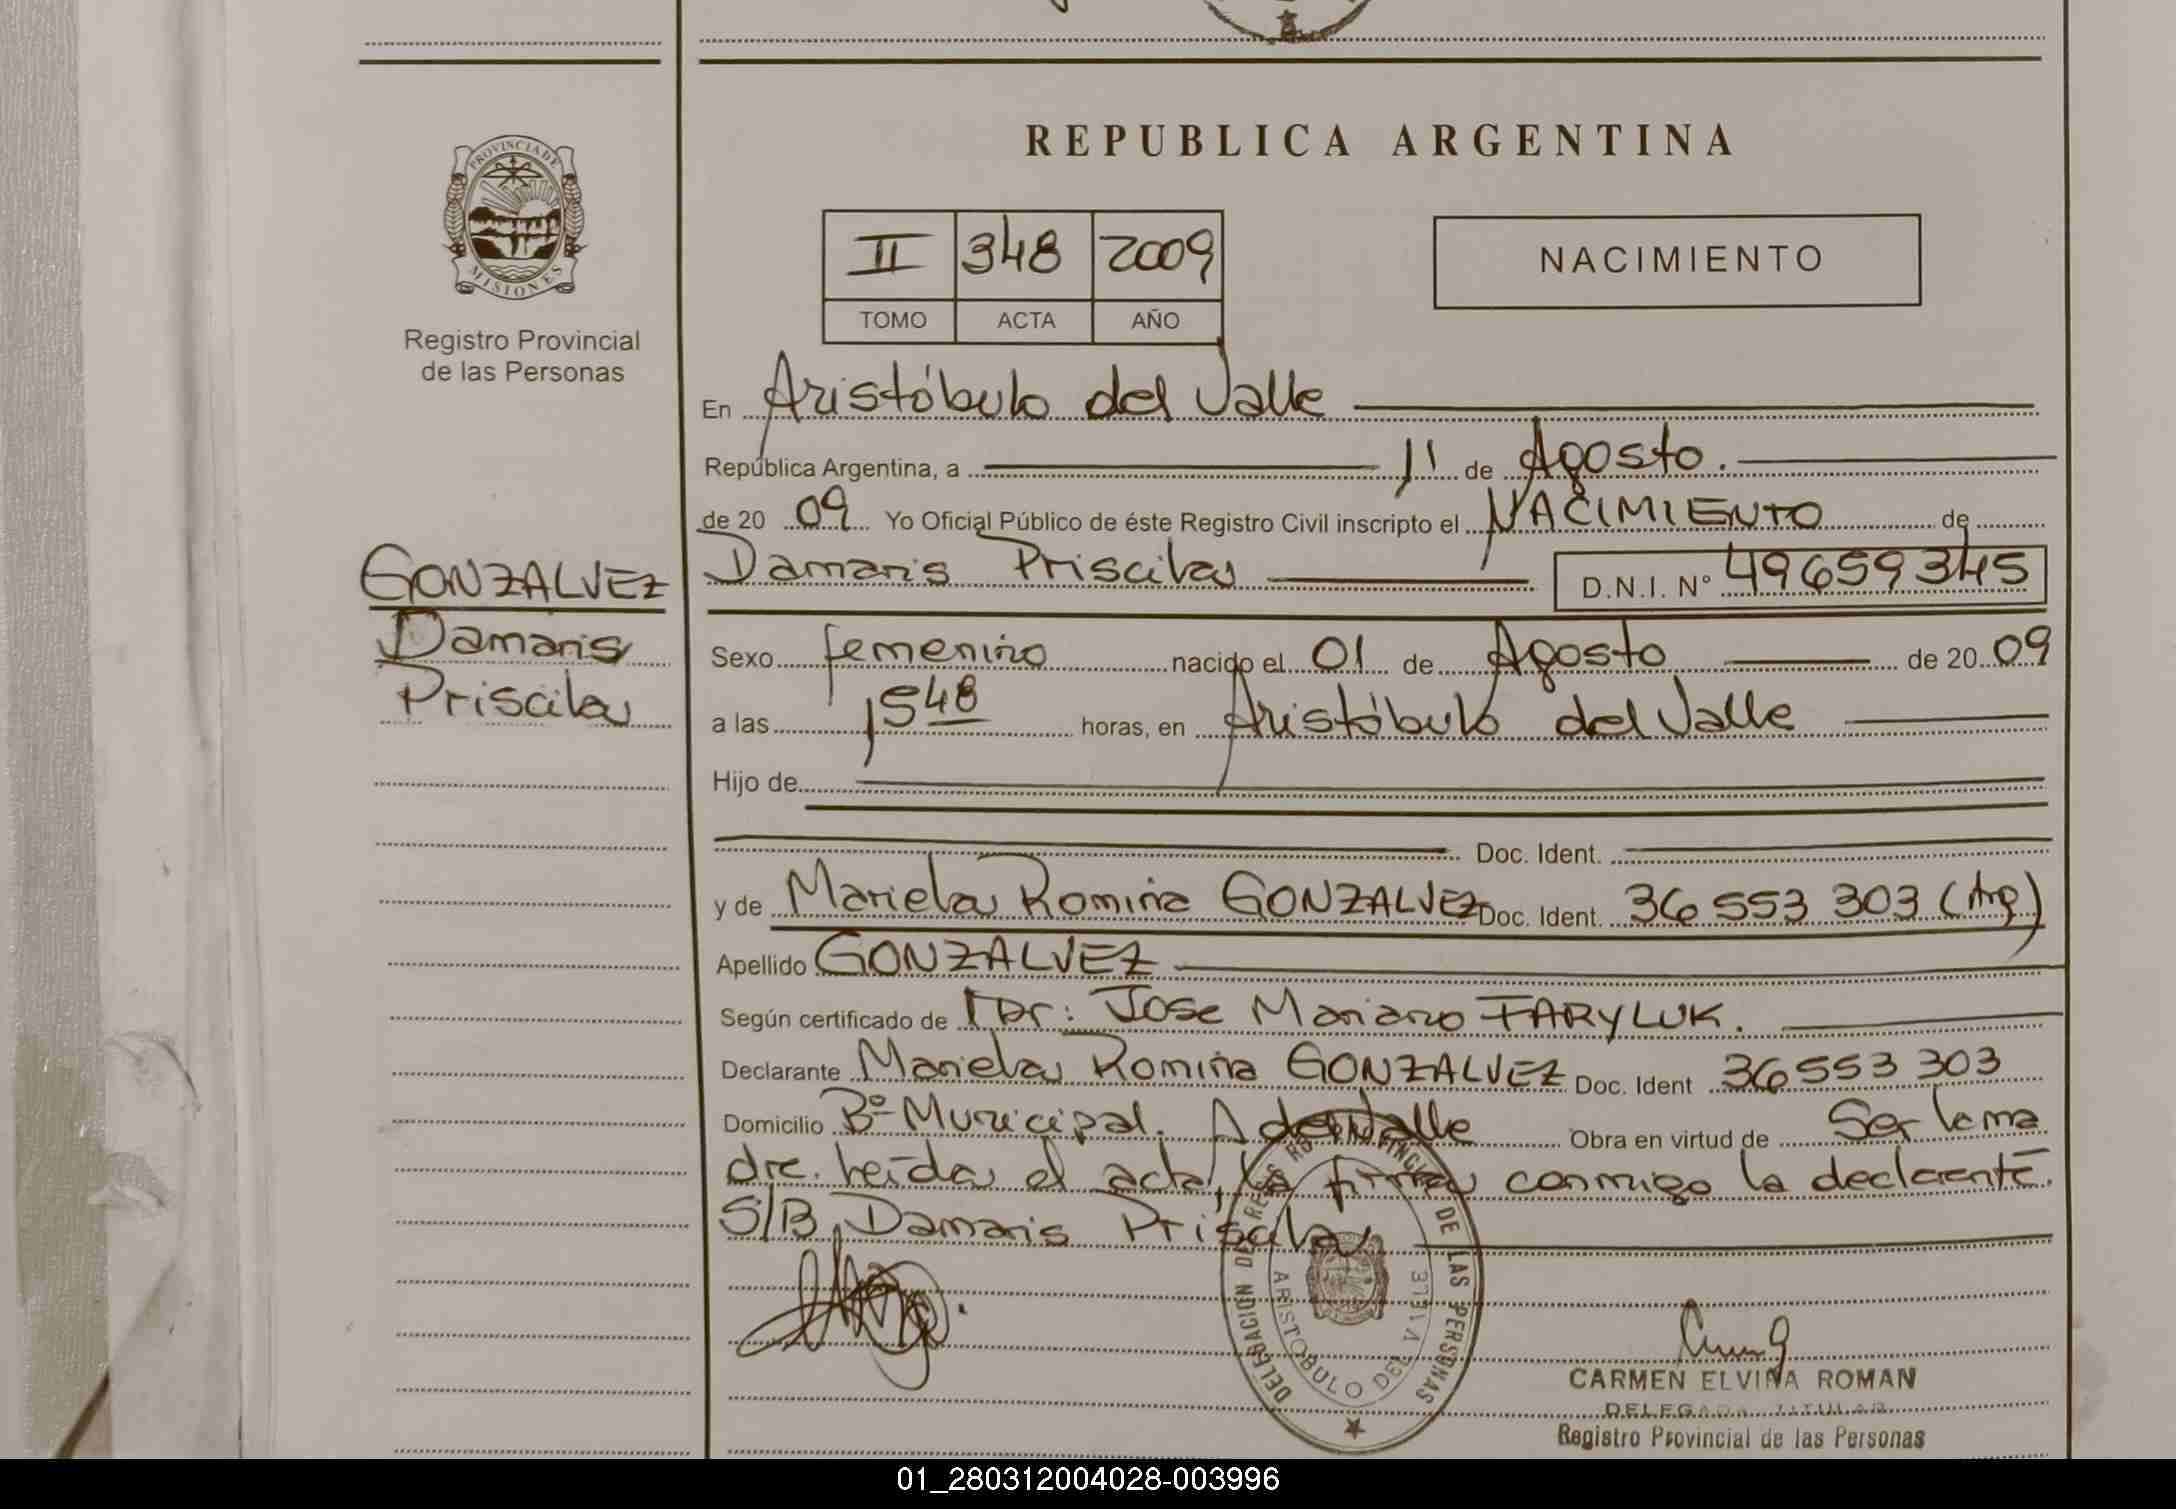 REPUBLICA ARGENTINA
PROVINCIA DE MISIONES
Registro Provincial
de las Personas
II 348 2009
TOMO ACTA AÑO
NACIMIENTO
En Aristóbulo del Valle
República Argentina, a 11 de Agosto.
de 20 09 Yo Oficial Público de éste Registro Civil inscripto el NACIMIENTO de
GONZALVEZ
Damaris
Priscila
Damaris Priscila D.N.I. N° 49659345
Sexo femenino nacido el 01 de Agosto de 20 09
a las 1548 horas, en Aristóbulo del Valle
Hijo de
Doc. Ident.
y de Mariela Romina GONZALVEZ Doc. Ident. 36 553 303 (Arg)
Apellido GONZALVEZ
Según certificado de Dr: Jose Mariano FARYLUK.
Declarante Mariela Romina GONZALVEZ Doc. Ident 36 553 303
Domicilio Bº Municipal. A del Valle Obra en virtud de Ser la ma
dre. leída el acta, la firma conmigo la declarante.
S/B Damaris Priscila
DELEGACION DE REGISTRO PROVINCIAL DE LAS PERSONAS
ARISTOBULO DEL VALLE
CARMEN ELVINA ROMAN
DELEGADA TITULAR
Registro Provincial de las Personas
01_280312004028-003996